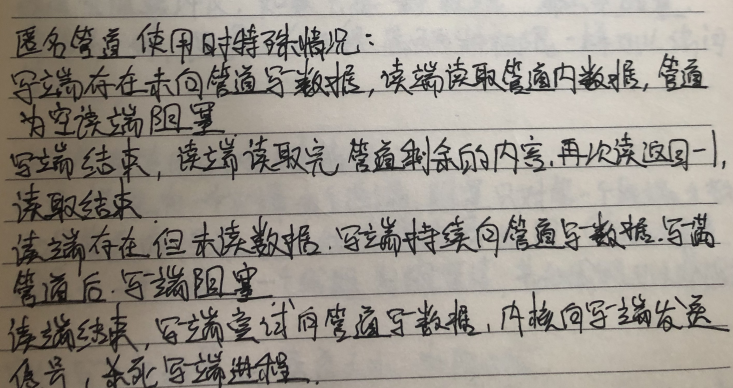 匿名管道使用时特殊情况：
写端存在未向管道写数据，读端读取管道内数据，管道
为空读端阻塞
写端结束，读端读取完，管道剩余的内容，再次读返回-1，
读取结束
读端存在但未读数据．写端持续向管道写数据．写满
管道后．写端阻塞
读端结束，写端尝试向管道写数据，内核向写端发送
信号，杀死写端进程．